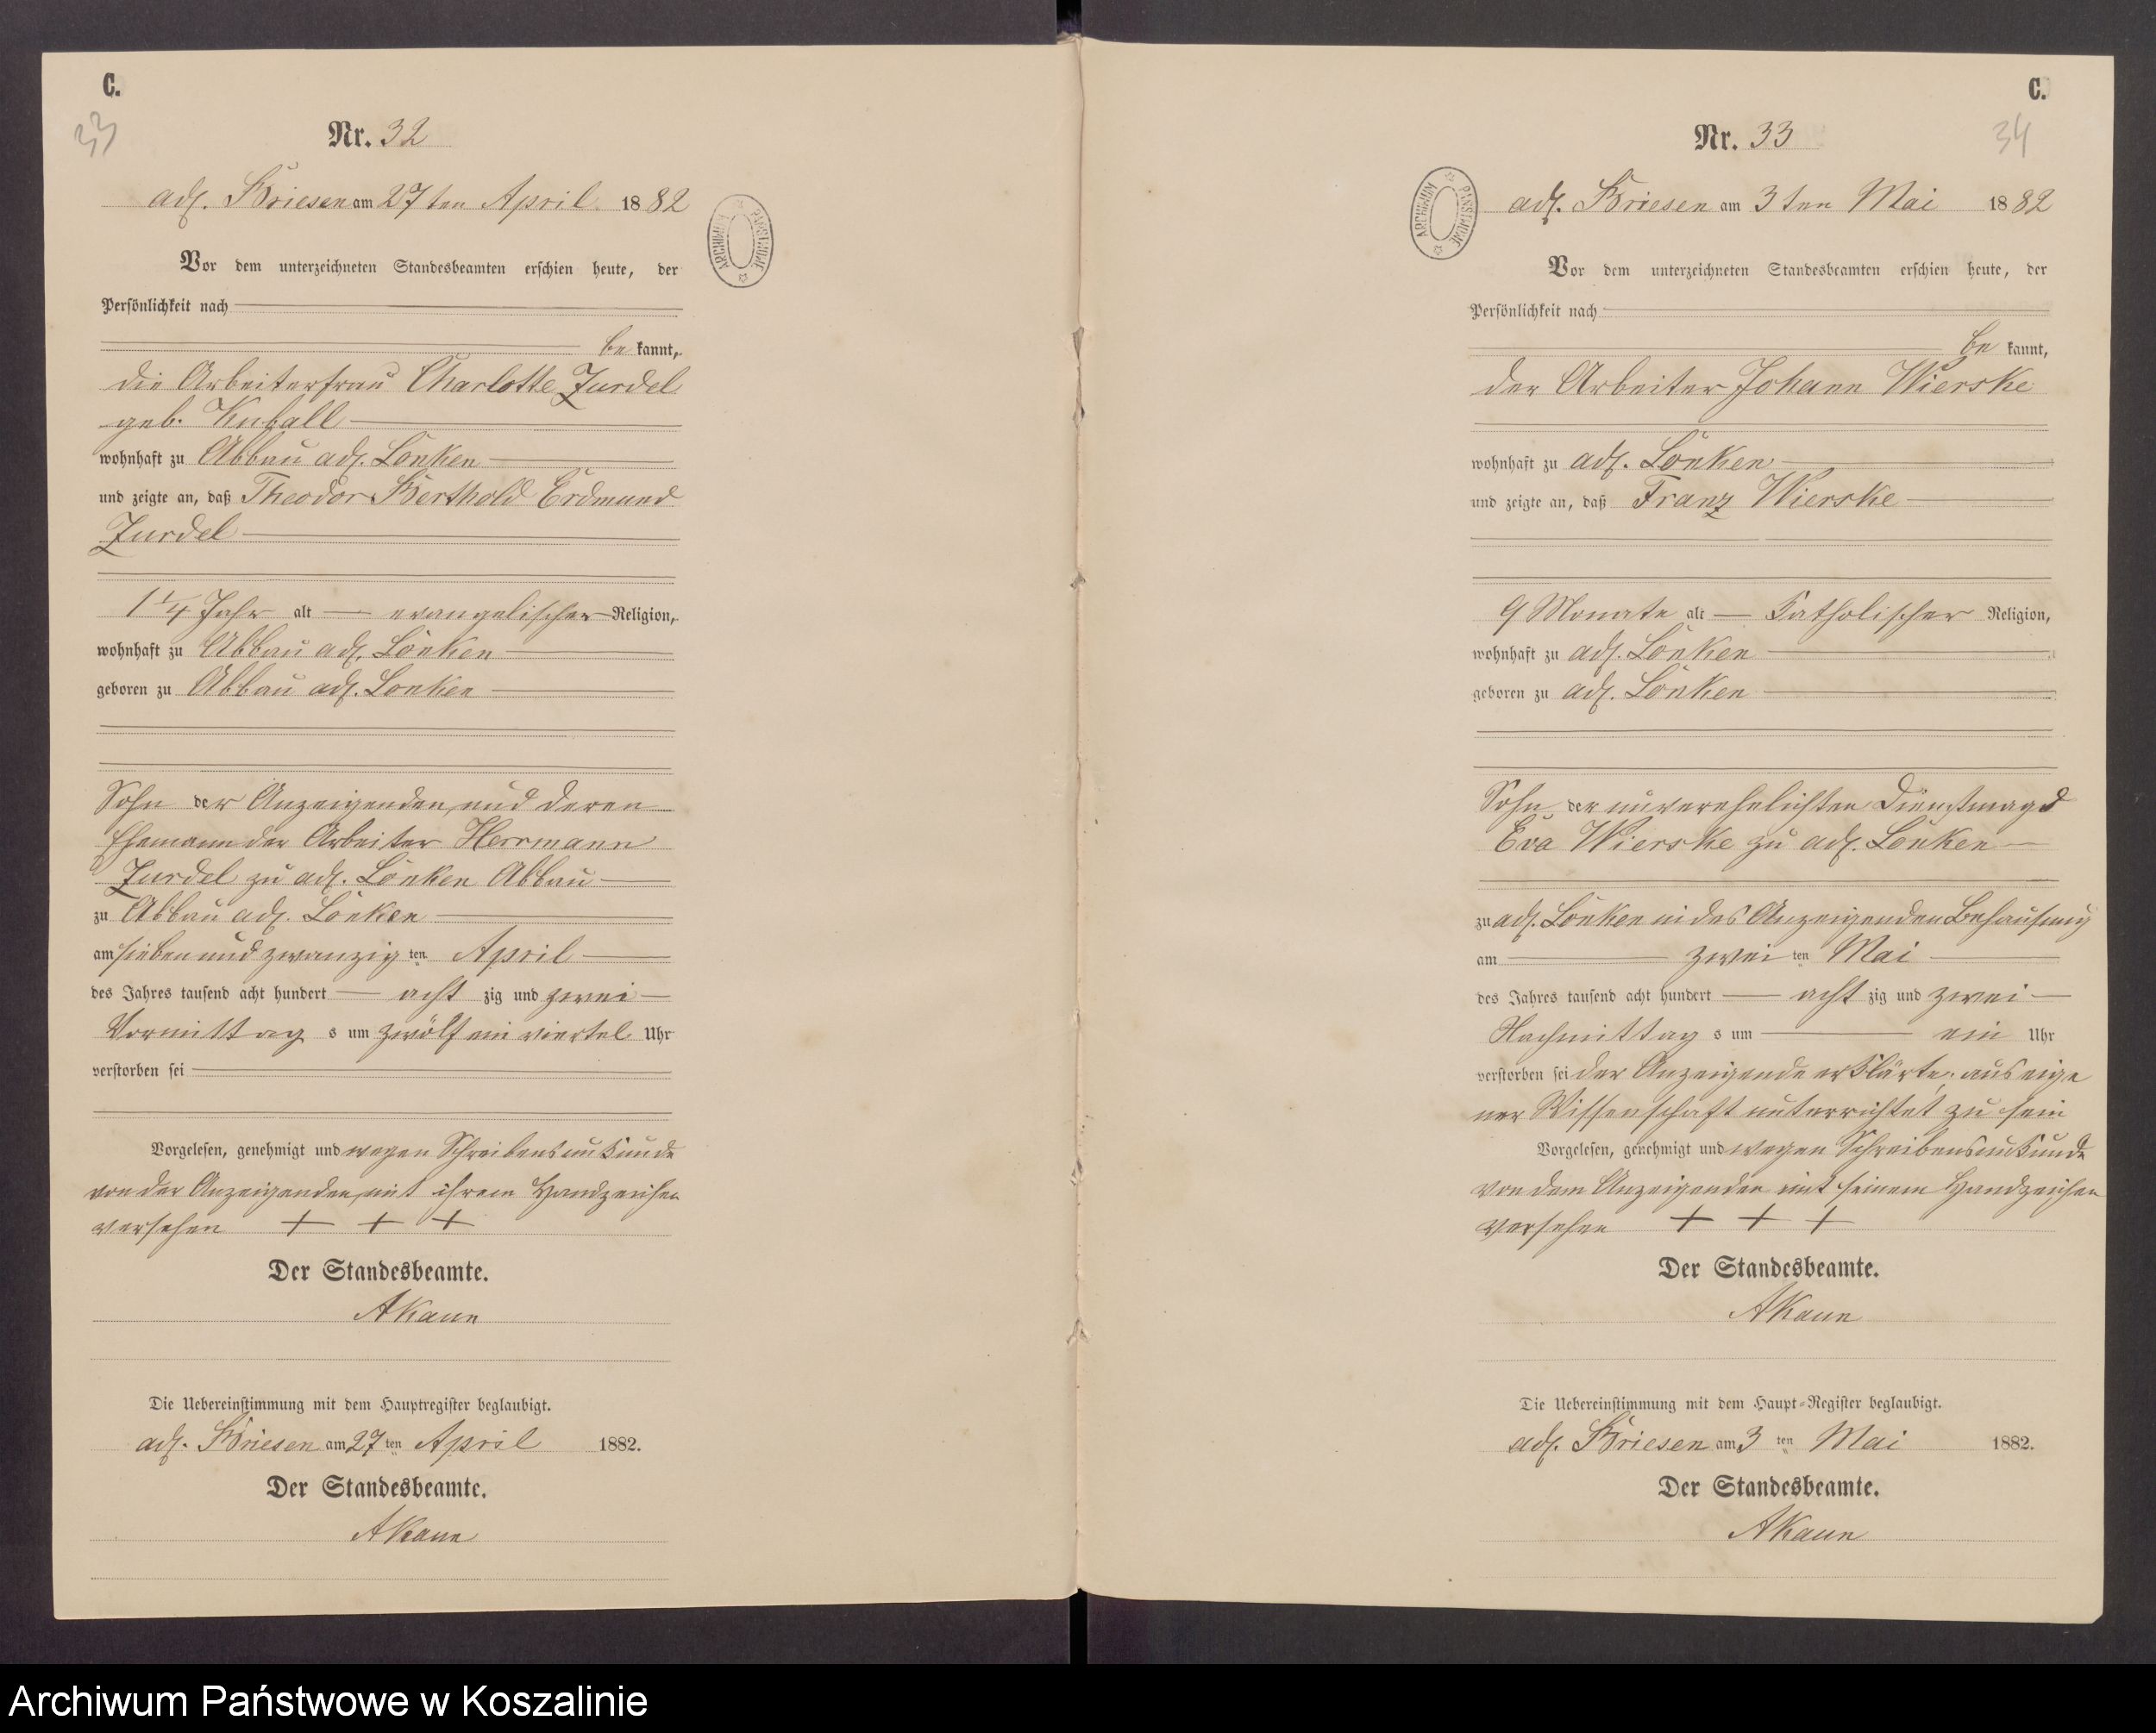 C.
33
Nr. 32
adl. Briesen am 27ten April 1882
Vor dem unterzeichneten Standesbeamten erschien heute, der
Persönlichkeit nach
be kannt,
die Arbeiterfrau Charlotte Zurdel
geb. Kuball
wohnhaft zu Abbau adl. Lonken
und zeigte an, daß Theodor Berthold Erdmund
Zurdel
1 1/4 Jahr alt evangelischer Religion,
wohnhaft zu Abbau adl. Lonken
geboren zu Abbau adl. Lonken
Sohn der Anzeigenden und deren
Ehemann der Arbeiter Herrmann
Zurdel zu adl. Lonken Abbau
zu Abbau adl. Lonken
am sieben und zwanzig ten April
des Jahres tausend acht hundert acht zig und zwei
Vormittag s um zwölf ein viertel Uhr
verstorben sei
Vorgelesen, genehmigt und wegen Schreibensunkunde
von der Anzeigenden mit ihrem Handzeichen
versehen + + +
Der Standesbeamte.
AKaun
Die Uebereinstimmung mit dem Hauptregister beglaubigt.
adl. Briesen am 27 ten April 1882.
Der Standesbeamte.
AKaun
ARCHIWUM PAŃSTWOWE
C.
34
Nr. 33
adl. Briesen am 3ten Mai 1882
Vor dem unterzeichneten Standesbeamten erschien heute, der
Persönlichkeit nach
be kannt,
der Arbeiter Johann Wierske
wohnhaft zu adl. Lonken
und zeigte an, daß Franz Wierske
9 Monate alt katholischer Religion,
wohnhaft zu adl. Lonken
geboren zu adl. Lonken
Sohn der unverehelichten Dienstmagd
Eva Wierske zu adl. Lonken
zu adl. Lonken in des Anzeigenden Behausung
am zwei ten Mai
des Jahres tausend acht hundert acht zig und zwei
Nachmittag s um ein Uhr
verstorben sei der Anzeigende erklärte, aus eige
ner Wissenschaft unterrichtet zu sein
Vorgelesen, genehmigt und wegen Schreibensunkunde
von dem Anzeigenden mit seinem Handzeichen
versehen + + +
Der Standesbeamte.
AKaun
Die Uebereinstimmung mit dem Haupt-Register beglaubigt.
adl. Briesen am 3 ten Mai 1882.
Der Standesbeamte.
AKaun
ARCHIWUM PAŃSTWOWE
Archiwum Państwowe w Koszalinie